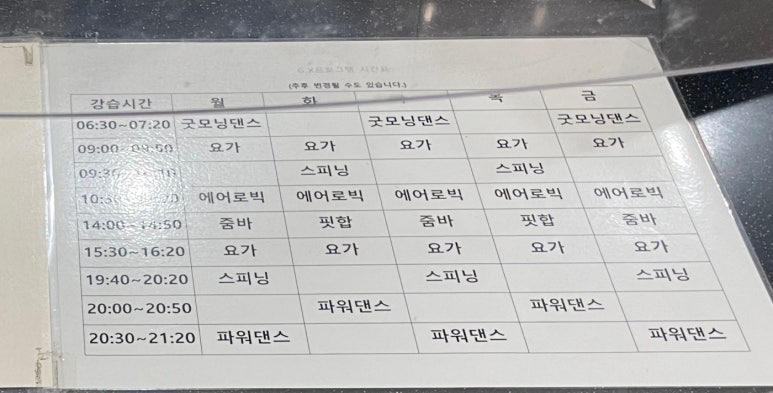 (추후 변경될 수도 있습니다.)
강습시간 월 화 목 금
06:30~07:20 굿모닝댄스 굿모닝댄스 굿모닝댄스
09:00 요가 요가 요가 요가 요가
스피닝 스피닝
에어로빅 에어로빅 에어로빅 에어로빅 에어로빅
14:00~14:50 줌바 핏합 줌바 핏합 줌바
15:30~16:20 요가 요가 요가 요가 요가
19:40~20:20 스피닝 스피닝 스피닝
20:00~20:50 파워댄스 파워댄스
20:30~21:20 파워댄스 파워댄스 파워댄스